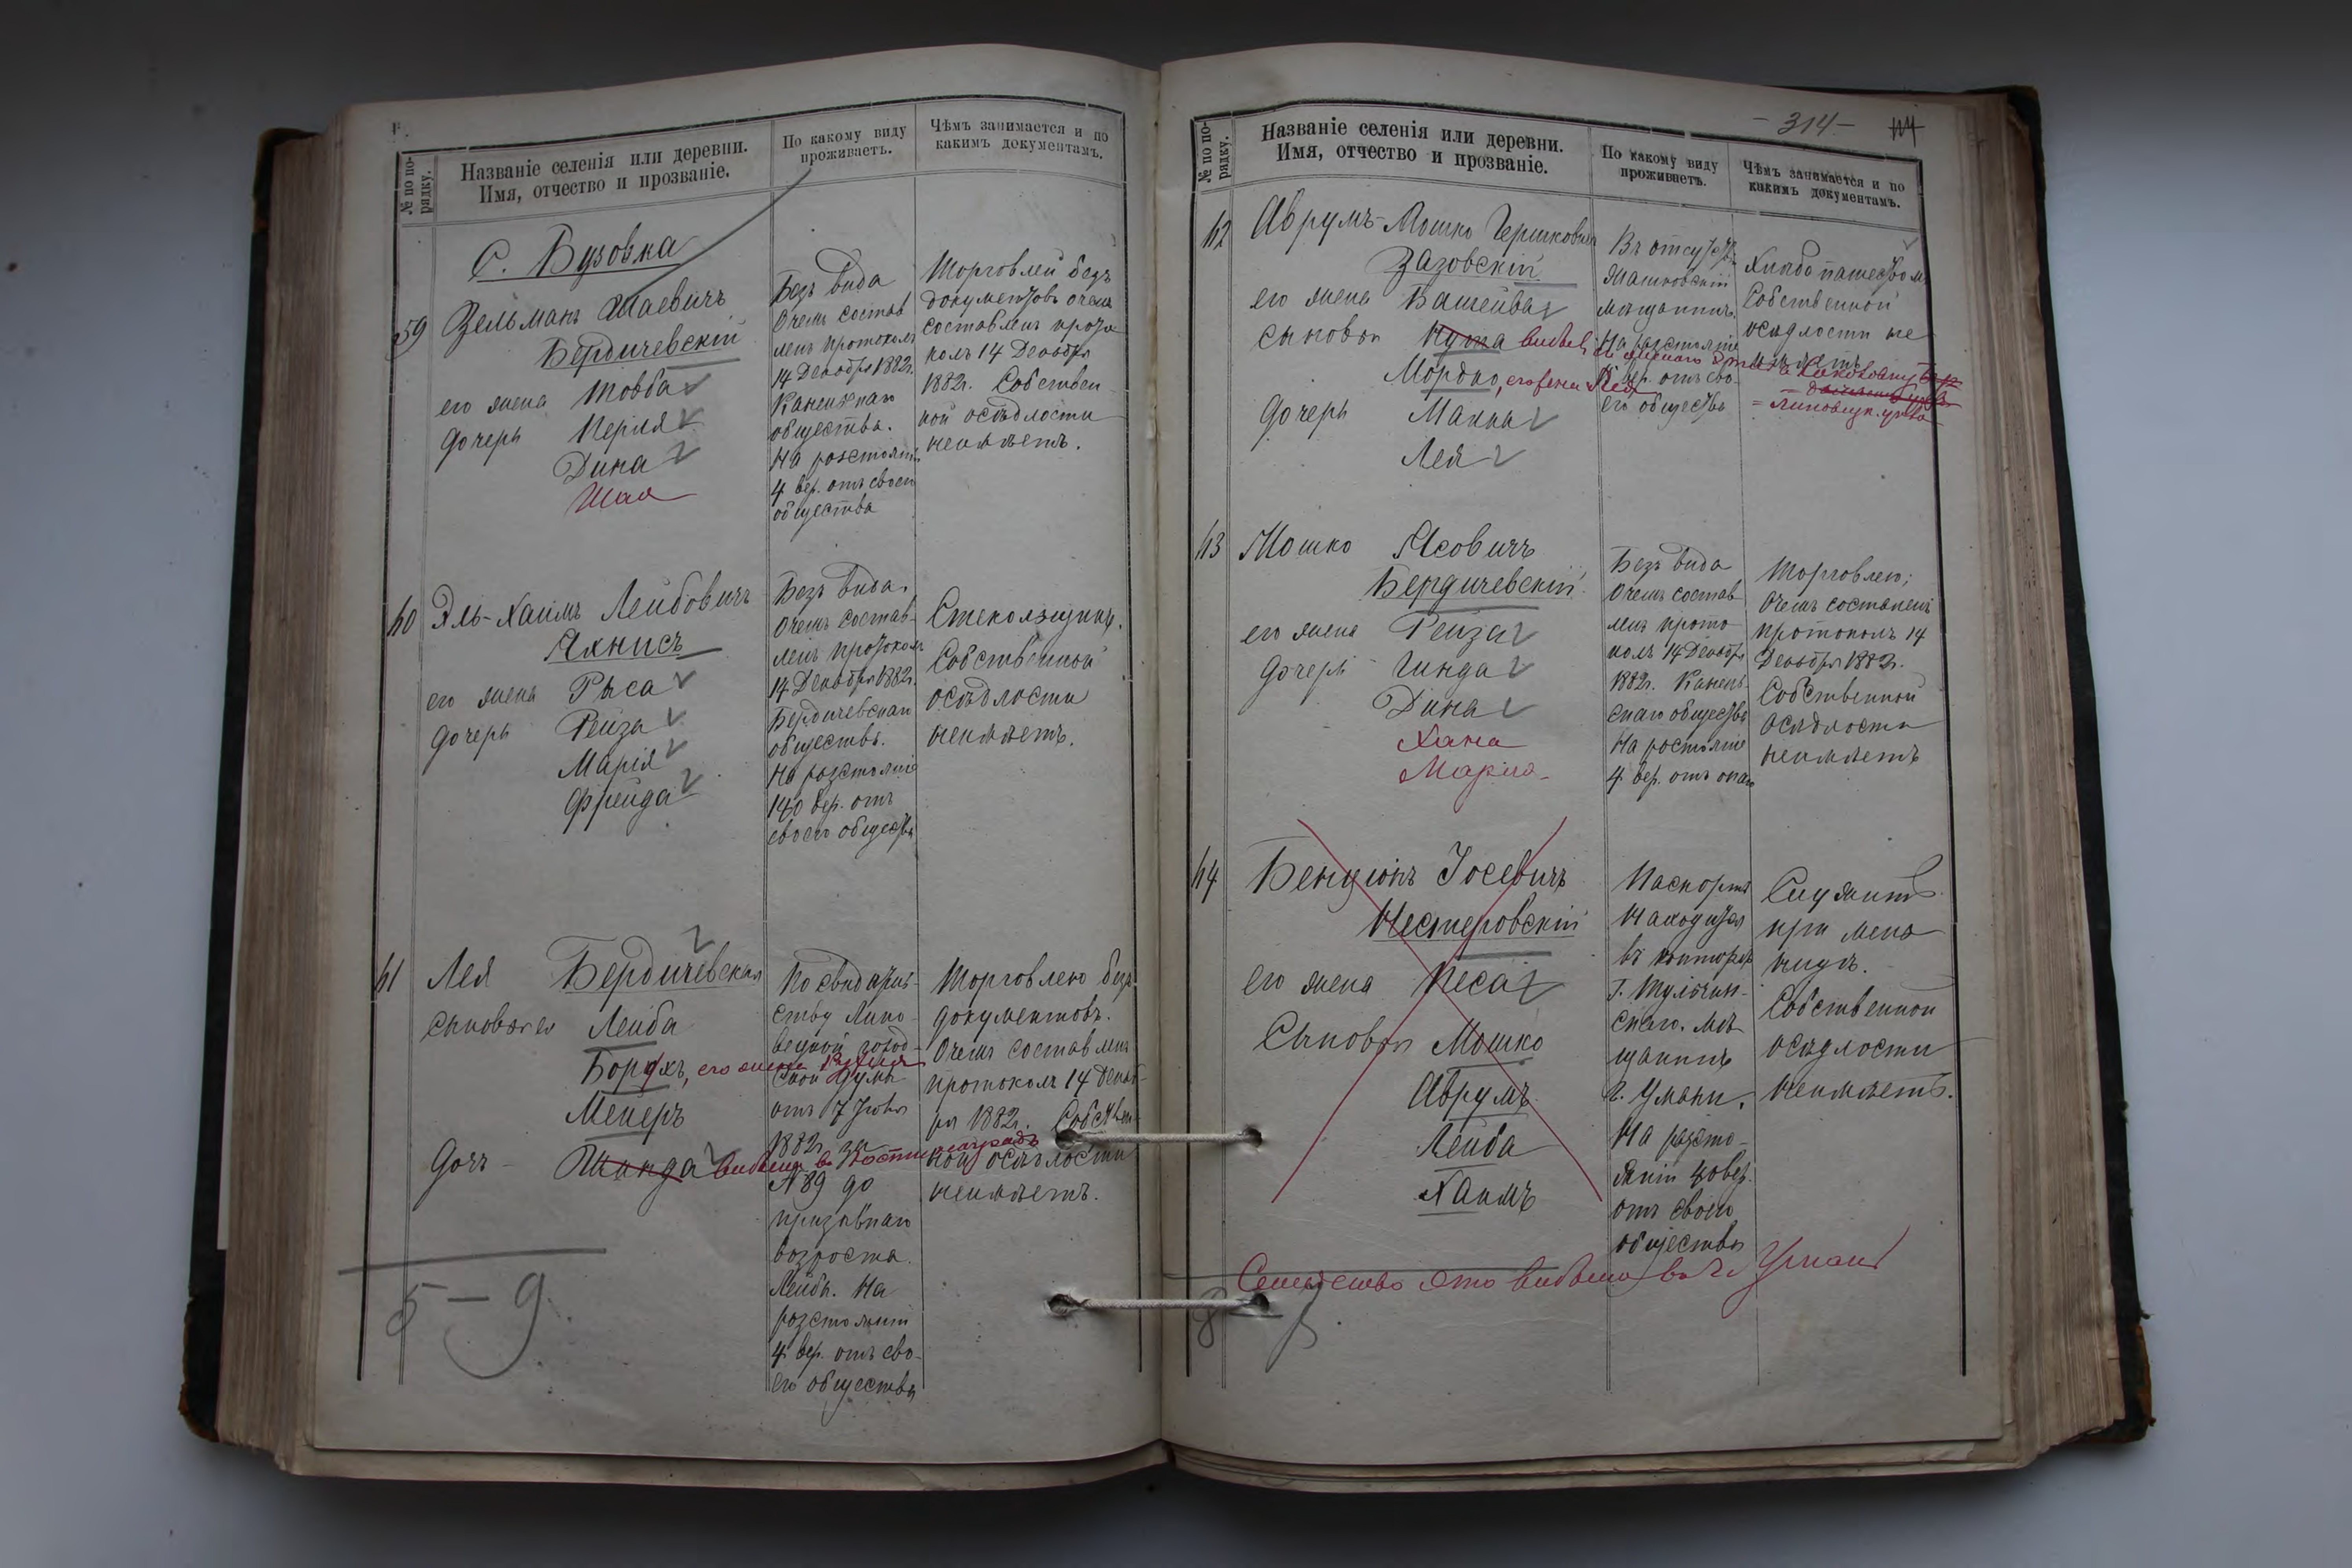 № по по-
рядку.
Названіе селенія или деревни.
Имя, отчество и прозваніе.
По какому виду
проживаетъ.
Чѣмъ занимается и по
какимъ документамъ.
С. Бузовка
59
Зельманъ Шаевичъ
Бердичевскій
его жена Товба
дочери Перля
Дина
Шая
Безъ вида
О чемъ состав
ленъ протоколъ
14 Декабря 1882г.
общества.
На разстояніи
4 вер. отъ своего
общества
Торговлей безъ
документовъ о чемъ
составленъ прото
колъ 14 Декабря
1882г. Собствен-
ной осѣдлости
неимѣетъ.
60
Эль-Хаимъ Лейбовичъ
Яхнисъ
его жена Рыса
дочери Рейза
Марія
Фрейда
Безъ вида.
О чемъ состав-
ленъ протоколъ
14 Декабря 1882г.
Бердичевскаго
общества.
На разстояніи
140 вер. отъ
своего общества
Стекольщикъ.
Собственной
осѣдлости
неимѣетъ.
61
Лея Бердичевская
сыновья ея Лейба
Борухъ, его жена
Мейеръ
дочь
По свидѣтель-
ству Липо-
вецкой город-
ской думы
отъ 7 Іюня
1882г. за
№ 89 до
призывнаго
возроста.
Лейбы. На
разстояніи
4 вер. отъ сво-
его общества
Торговлею безъ
документовъ.
О чемъ составленъ
протоколъ 14 Декаб-
ря 1882г. Собствен-
ной осѣдлости
неимѣетъ.
5 – 9.
- 314 -
№ по по-
рядку.
Названіе селенія или деревни.
Имя, отчество и прозваніе.
По какому виду
проживаетъ.
Чѣмъ занимается и по
какимъ документамъ.
62
Аврумъ-Мошко Гершковичъ
Зазовскій
его жена Башейва
сыновья Нута
Мордко, его жена Лея
дочери Малка
Лея
Въ отсутств.
мѣщанинъ.
На разстояніи
вер. отъ сво-
его общества
Хлѣбопашествомъ
Собственной
осѣдлости не
имѣетъ
63
Мошко Ясовичъ
Бердичевскій
его жена Рейза
дочери Гинда
Дина
Хана
Марія
Безъ вида
О чемъ состав-
ленъ прото-
колъ 14 Декабря
1882г.
скаго общества
На разстояніи
4 вер. отъ онаго
Торговлею;
О чемъ составленъ
протоколъ 14
Декабря 1882г.
Собственной
осѣдлости
неимѣетъ
64
Бенціонъ Іосевичъ
Нестеровскій
его жена Песа
Сыновья Мошко
Аврумъ
Лейба
Хаимъ
Паспортъ
находится
въ конторѣ
г. Тульчин-
скаго. Мѣ-
щанинъ
г. Умани.
На разсто-
яніи 40 вер.
отъ своего
общества
Служитъ
при мель-
ницѣ.
Собственной
осѣдлости
неимѣетъ.
Семейство это выбыло въ г. Умань